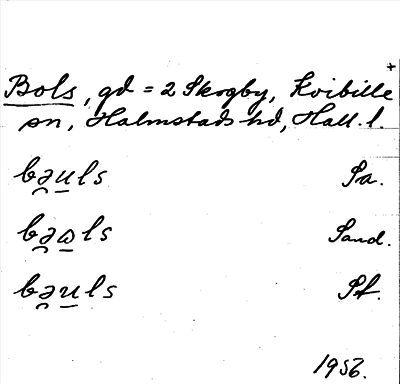 +
Bols, gd = 2 Skogby, Kvibille
sn, Halmstads hd, Hall. l.
bə̯u̲ls Sa.
bə̯ω̲ls Sand.
bə̯u̲ls St.
1956.